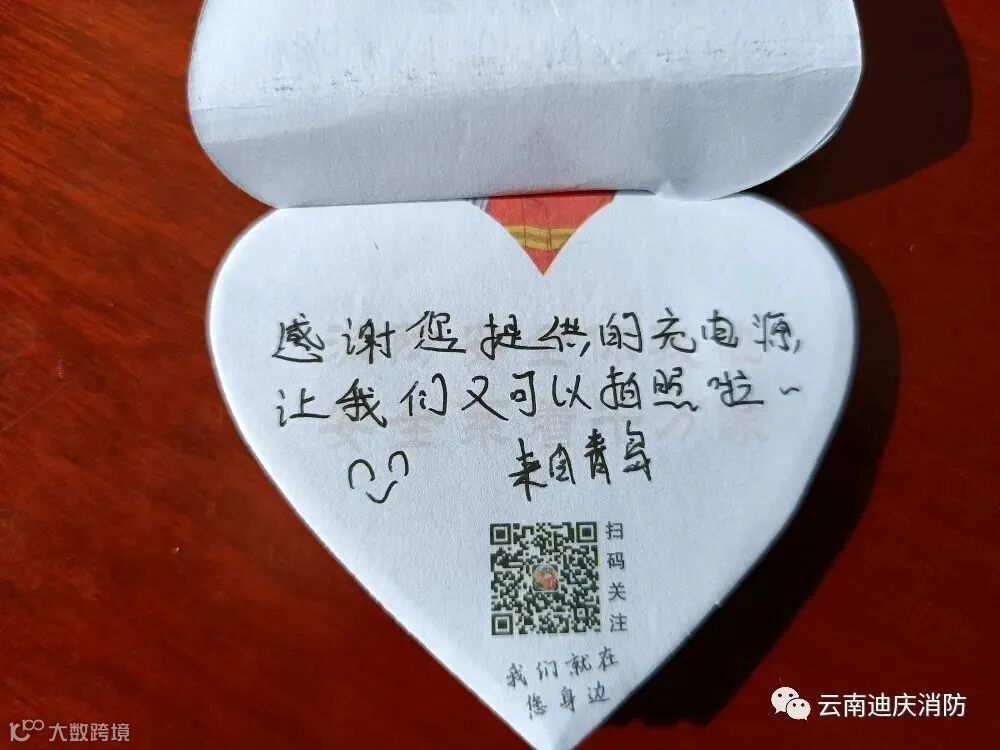 感谢您提供的充电源,
让我们又可以拍照啦~
来自青岛
扫码关注
我们就在
您身边
云南迪庆消防
大数跨境